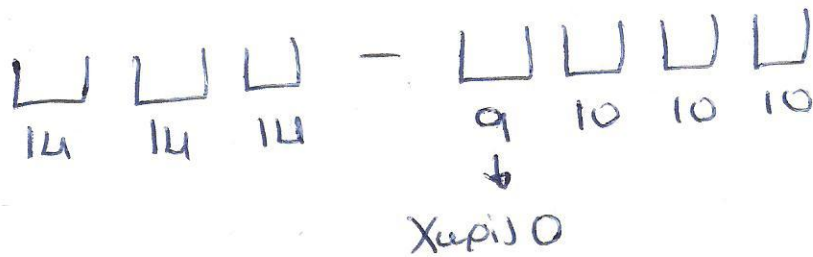 14 14 14 - 9 10 10 10
Χωρίς 0